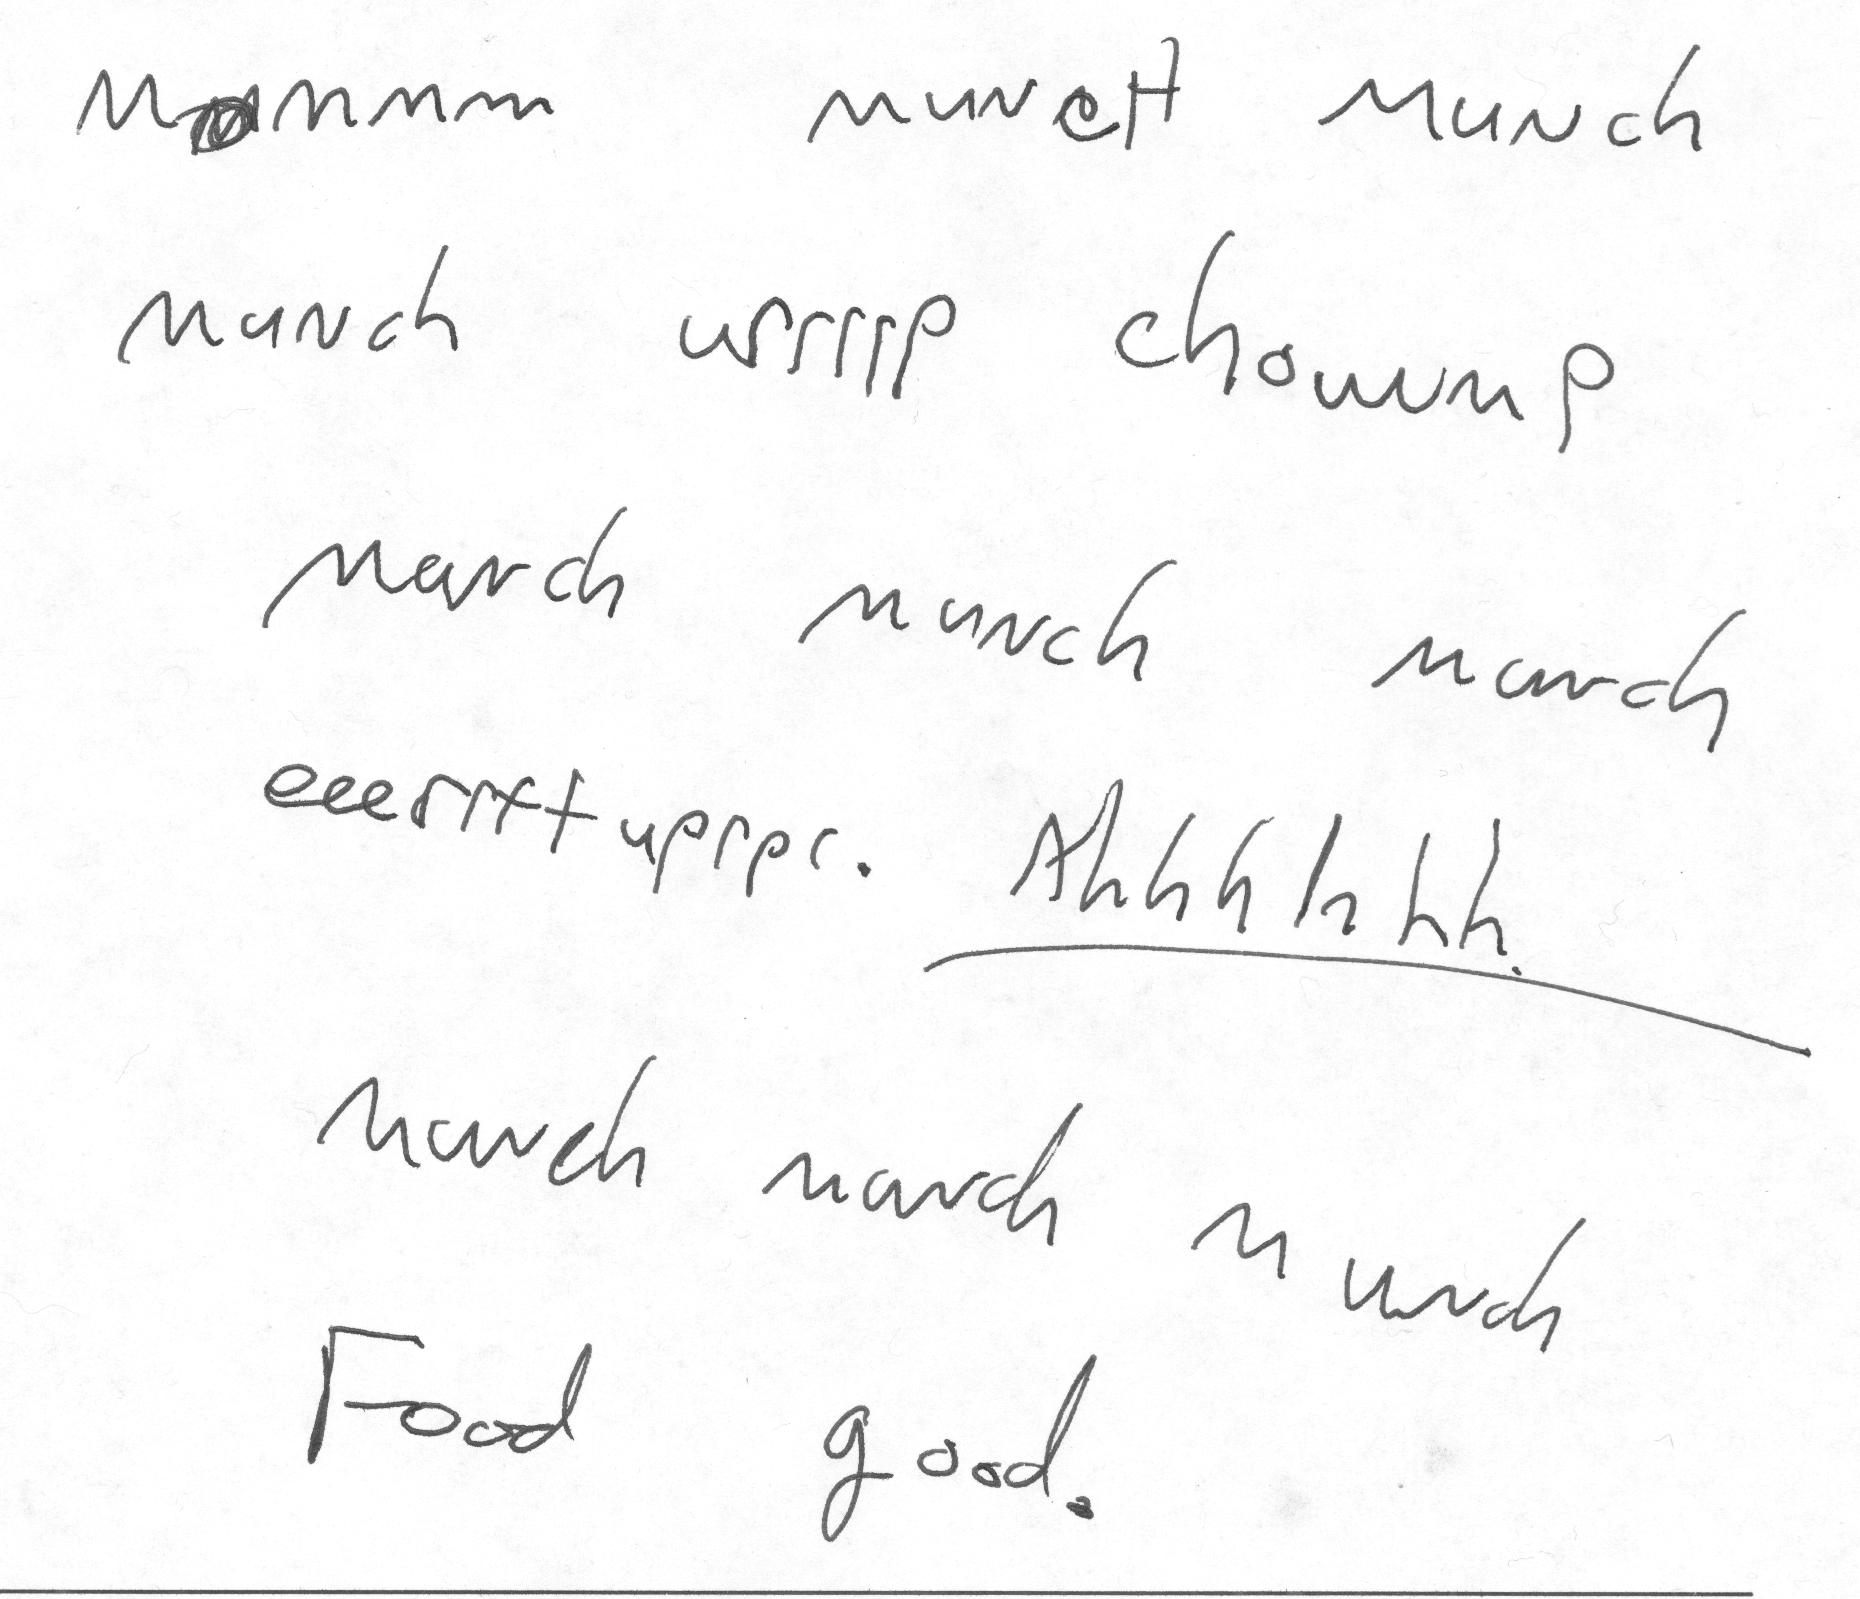 Mmmmm muncH Munch
Munch urrrrp chouump
Munch munch munch
eeerrrttuprpr. Ahhhhhh.
Munch munch munch
Food good.